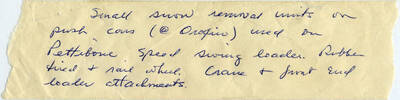 Small snow removal units on
push cars (@ Orofino) used on
Pettibone Speed Swing loader. Rubber
tired & rail wheel. Crane & front end
loader attachments.